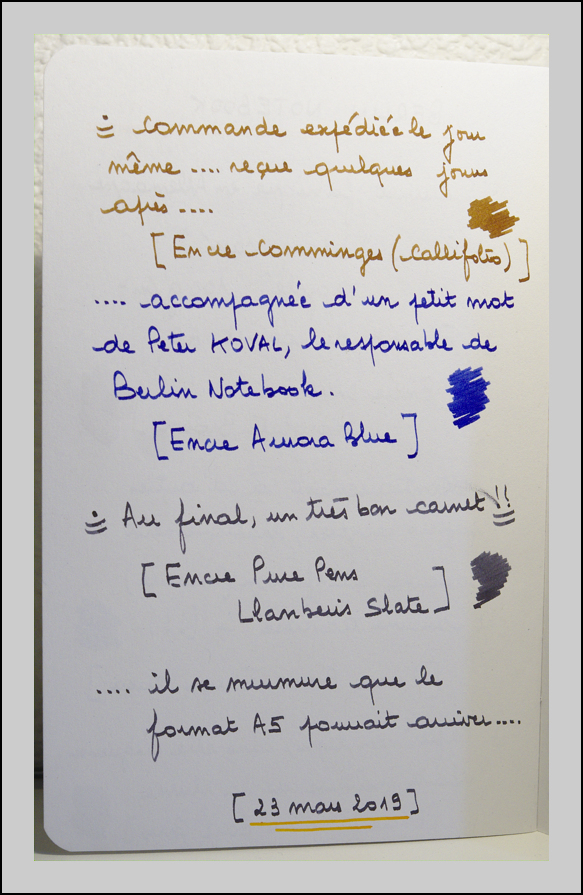 commande expédiée le jour
même .... reçue quelques jours
après ....
[Encre Comminges (Callifolio)]
.... accompagnée d'un petit mot
de Peter KOVAL, le responsable de
Berlin Notebook.
[Encre Aurora Blue]
Au final, un très bon carnet !!
[Encre Pure Pens
Llanberis Slate]
.... il se murmure que le
format A5 pourrait arriver ....
[23 mars 2019]